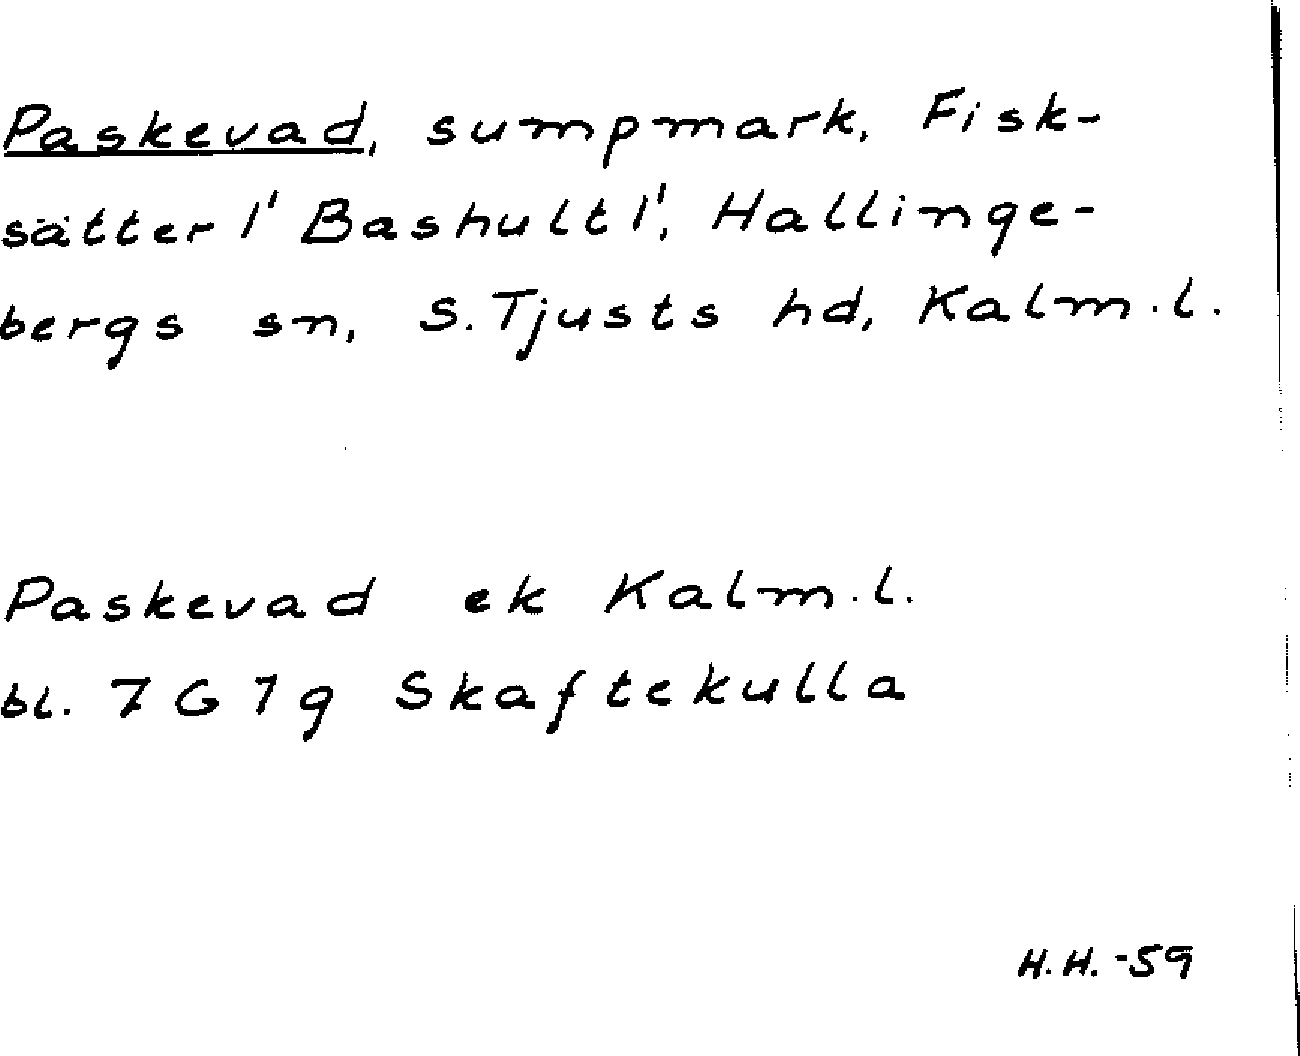 Paskevad, sumpmark, Fisk-
sätter 1' Bashult 1', Hallinge-
bergs sn, S. Tjusts hd, Kalm. l.
Paskevad ek Kalm. l.
bl. 7 G 7 g Skaftekulla
H. H. -59